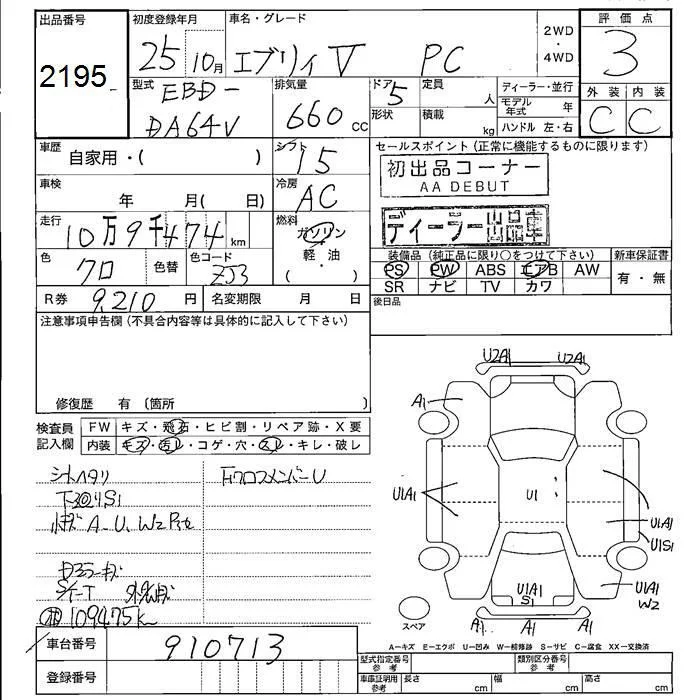 出品番号
2195
初度登録年月
25 10月
車名・グレード
エブリィV PC
2WD
・
4WD
評価点
3
外装 内装
C C
型式
EBD-
DA64V
排気量
660 cc
ドア 5
形状
定員 人
積載 kg
ディーラー・並行
モデル年式 年
ハンドル 左・右
車歴
自家用・( )
シフト
I5
セールスポイント (正常に機能するものに限ります)
初出品コーナー
AA DEBUT
ディーラー出品車
車検
年 月( 日)
冷房
AC
走行
10万9千474 km
燃料
ガソリン
・
軽・油
( )
色
クロ
色替
色コード
ZJ3
装備品 (純正品に限り○をつけて下さい)
PS PW ABS エアB AW
SR ナビ TV カワ
新車保証書
有・無
R券 9,210 円
名変期限 月 日
後日品
注意事項申告欄 (不具合内容等は具体的に記入して下さい)
修復歴 有 (箇所 )
検査員
記入欄
FW キズ・飛石・ヒビ割・リペア跡・X要
内装 キズ・汚レ・コゲ・穴・スレ・キレ・破レ
シートヘタリ
A-U、W2
109475k
クロスメンバーU
U2A1 U2A1
A1
U1A1
U1
U1A1
U1S1
U1A1
S1
U1A1
W2
A1 A1 A1
スペア
A−キズ E−エクボ U−凹み W−補修跡 S−サビ C−腐食 XX−交換済
車台番号
910713
登録番号
型式指定番号
参考
類別区分番号
参考
車庫証明用
参考
長さ cm
幅 cm
高さ cm